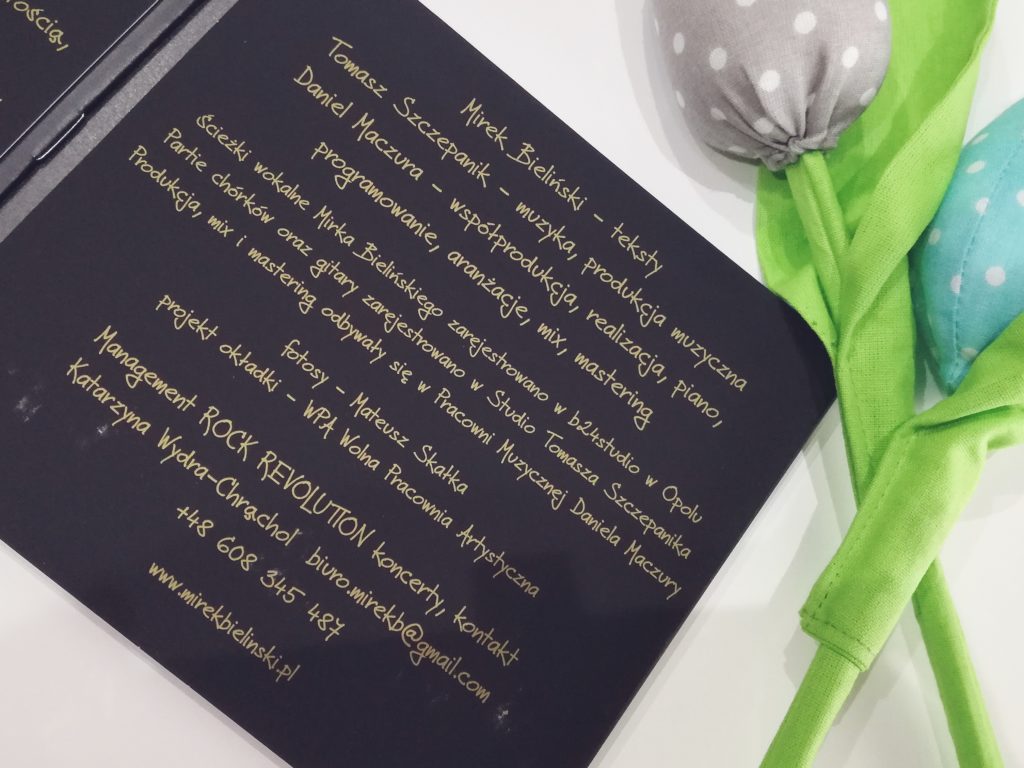 rością,
Mirek Bieliński – teksty
Tomasz Szczepanik – muzyka, produkcja muzyczna
Daniel Maczura – współprodukcja, realizacja, piano,
programowanie, aranżacje, mix, mastering
Ścieżki wokalne Mirka Bielińskiego zarejestrowano w b24studio w Opolu
Partie chórków oraz gitary zarejestrowano w Studio Tomasza Szczepanika
Produkcja, mix i mastering odbywały się w Pracowni Muzycznej Daniela Maczury
fotosy – Mateusz Skałka
projekt okładki – WPA Wolna Pracownia Artystyczna
Management ROCK REVOLUTION koncerty, kontakt
Katarzyna Wydra-Chrąchol biuro.mirekb@gmail.com
+48 608 345 487
www.mirekbielinski.pl